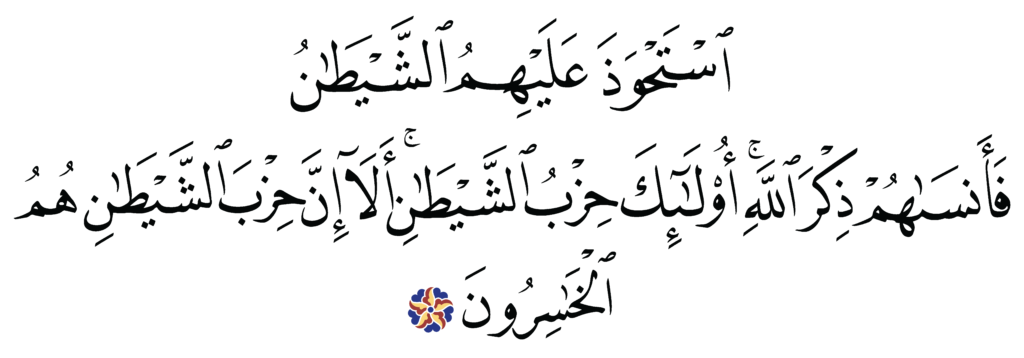 ٱسْتَحْوَذَ عَلَيْهِمُ ٱلشَّيْطَٰنُ
فَأَنسَىٰهُمْ ذِكْرَ ٱللَّهِۚ أُو۟لَٰٓئِكَ حِزْبُ ٱلشَّيْطَٰنِۚ أَلَآ إِنَّ حِزْبَ ٱلشَّيْطَٰنِ هُمُ
ٱلْخَٰسِرُونَ